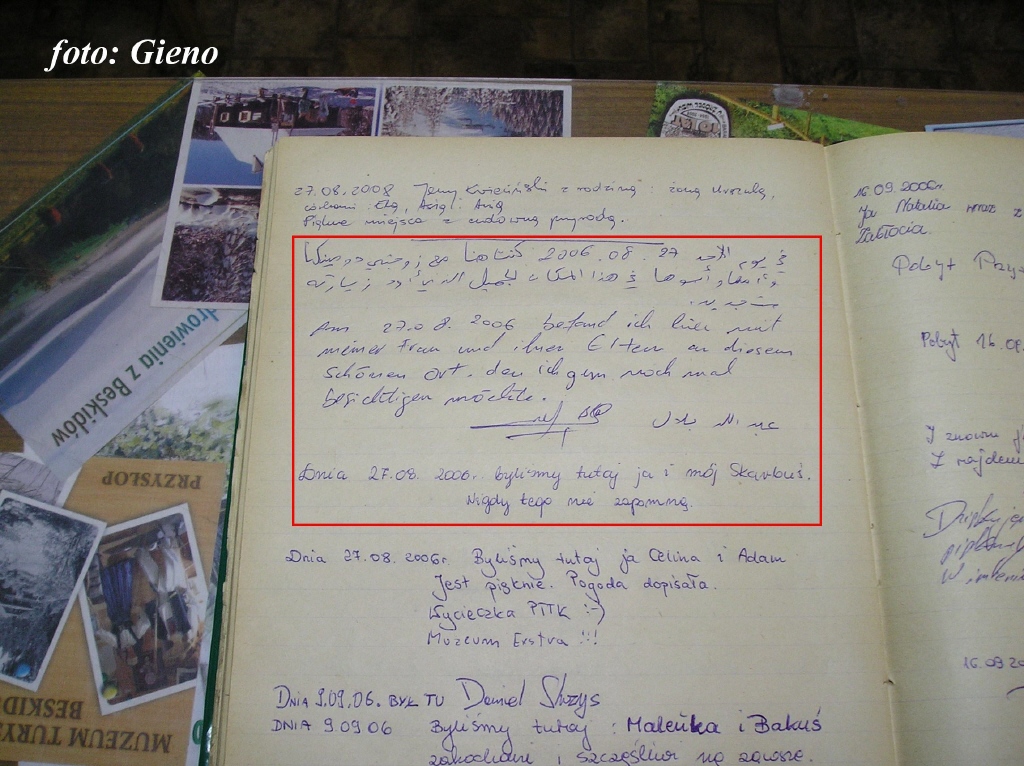 foto: Gieno
27.08.2008 Jerzy Kwieciński z rodziną: żoną Urszulą,
Elą, Asią i Anią
Piękne miejsca z cudowną przyrodą.
في يوم الأحد 27.08.2006 كنت هنا مع زوجتي
في هذا المكان الجميل الذي أود زيارته
من جديد.
Am 27.08.2006 befand ich hier mit
meiner Frau und ihren Eltern an diesem
schönen Ort, den ich gern noch mal
besichtigen möchte.
عبد الله
Dnia 27.08.2006r. byliśmy tutaj ja i mój Skarbuś.
Nigdy tego nie zapomnę.
Dnia 27.08.2006r. Byliśmy tutaj ja Celina i Adam
Jest pięknie. Pogoda dopisała.
Wycieczka PTTK :-)
Muzeum Exstra !!!
DNIA 9.09.06. BYŁ TU Daniel
DNIA 9.09.06 Byliśmy tutaj: Maleńka i Bakuś
zakochani i szczęśliwi na zawsze.
16.09.2006r.
Ja Natalia wraz z
Zabłocia.
Pobyt
Pobyt 16.09.
I znowu
I najdem
W imieniu
16.09.20
drowienia z Beskidów
PRZYSŁOP
MUZEUM TURYS
BESKID